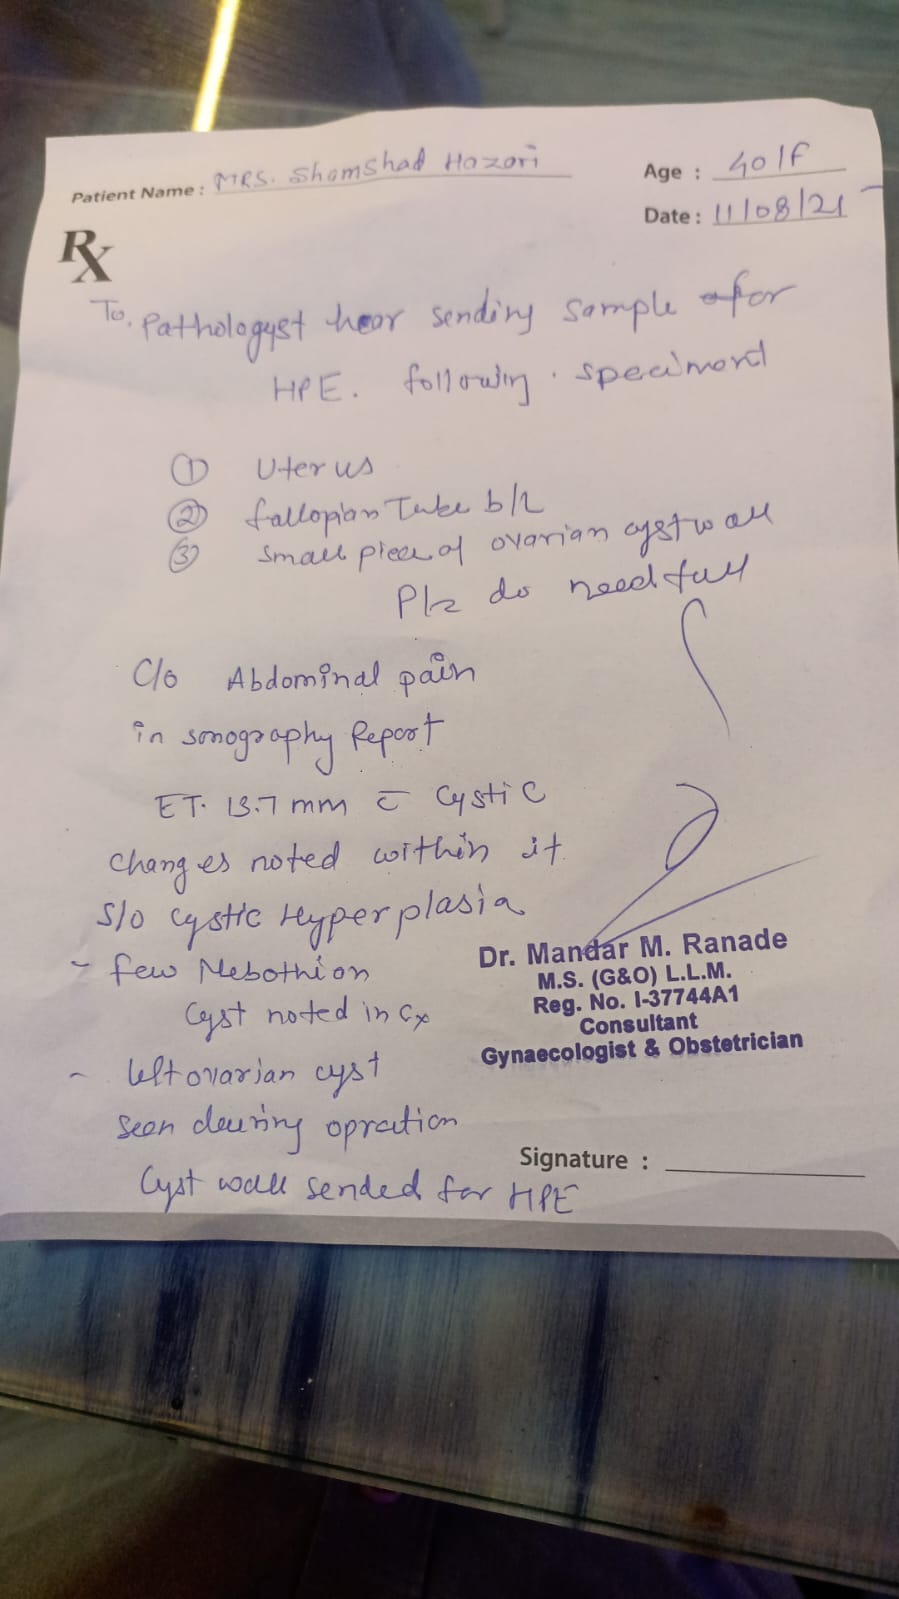 Patient Name : MRS. Shamshad Hazari
Age : 40/F
Date : 11/08/21
Rx
To, Pathologyst hear sending sample for
HPE. following specimont
① Uterus
② fallopian Tube b/L
③ small piece of ovarian cyst wall
Plz do needfull
C/o Abdominal pain
in sonography Report
ET. 13.7 mm c̄ Cystic
changes noted within it
S/o cystic Hyperplasia
- few Nebothion
Cyst noted in Cx
- left ovarian cyst
seen dewring opration
Cyst wall sended for HPE
Dr. Mandar M. Ranade
M.S. (G&O) L.L.M.
Reg. No. I-37744A1
Consultant
Gynaecologist & Obstetrician
Signature :